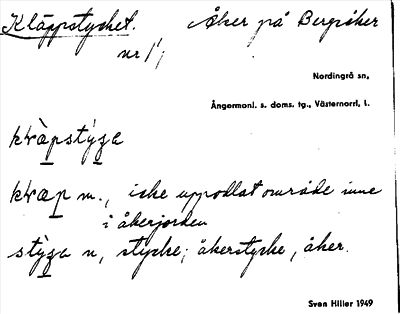 Kläppstycket. Åker på Bergsåker
nr 1/1
Nordingrå sn,
Ångermanl. s. doms. tg., Västernorrl, l.
kràpstyʒa
kræp m., icke uppodlat område inne
i åkerjorden
styʒa n, stycke; åkerstycke, åker.
Sven Hiller 1949